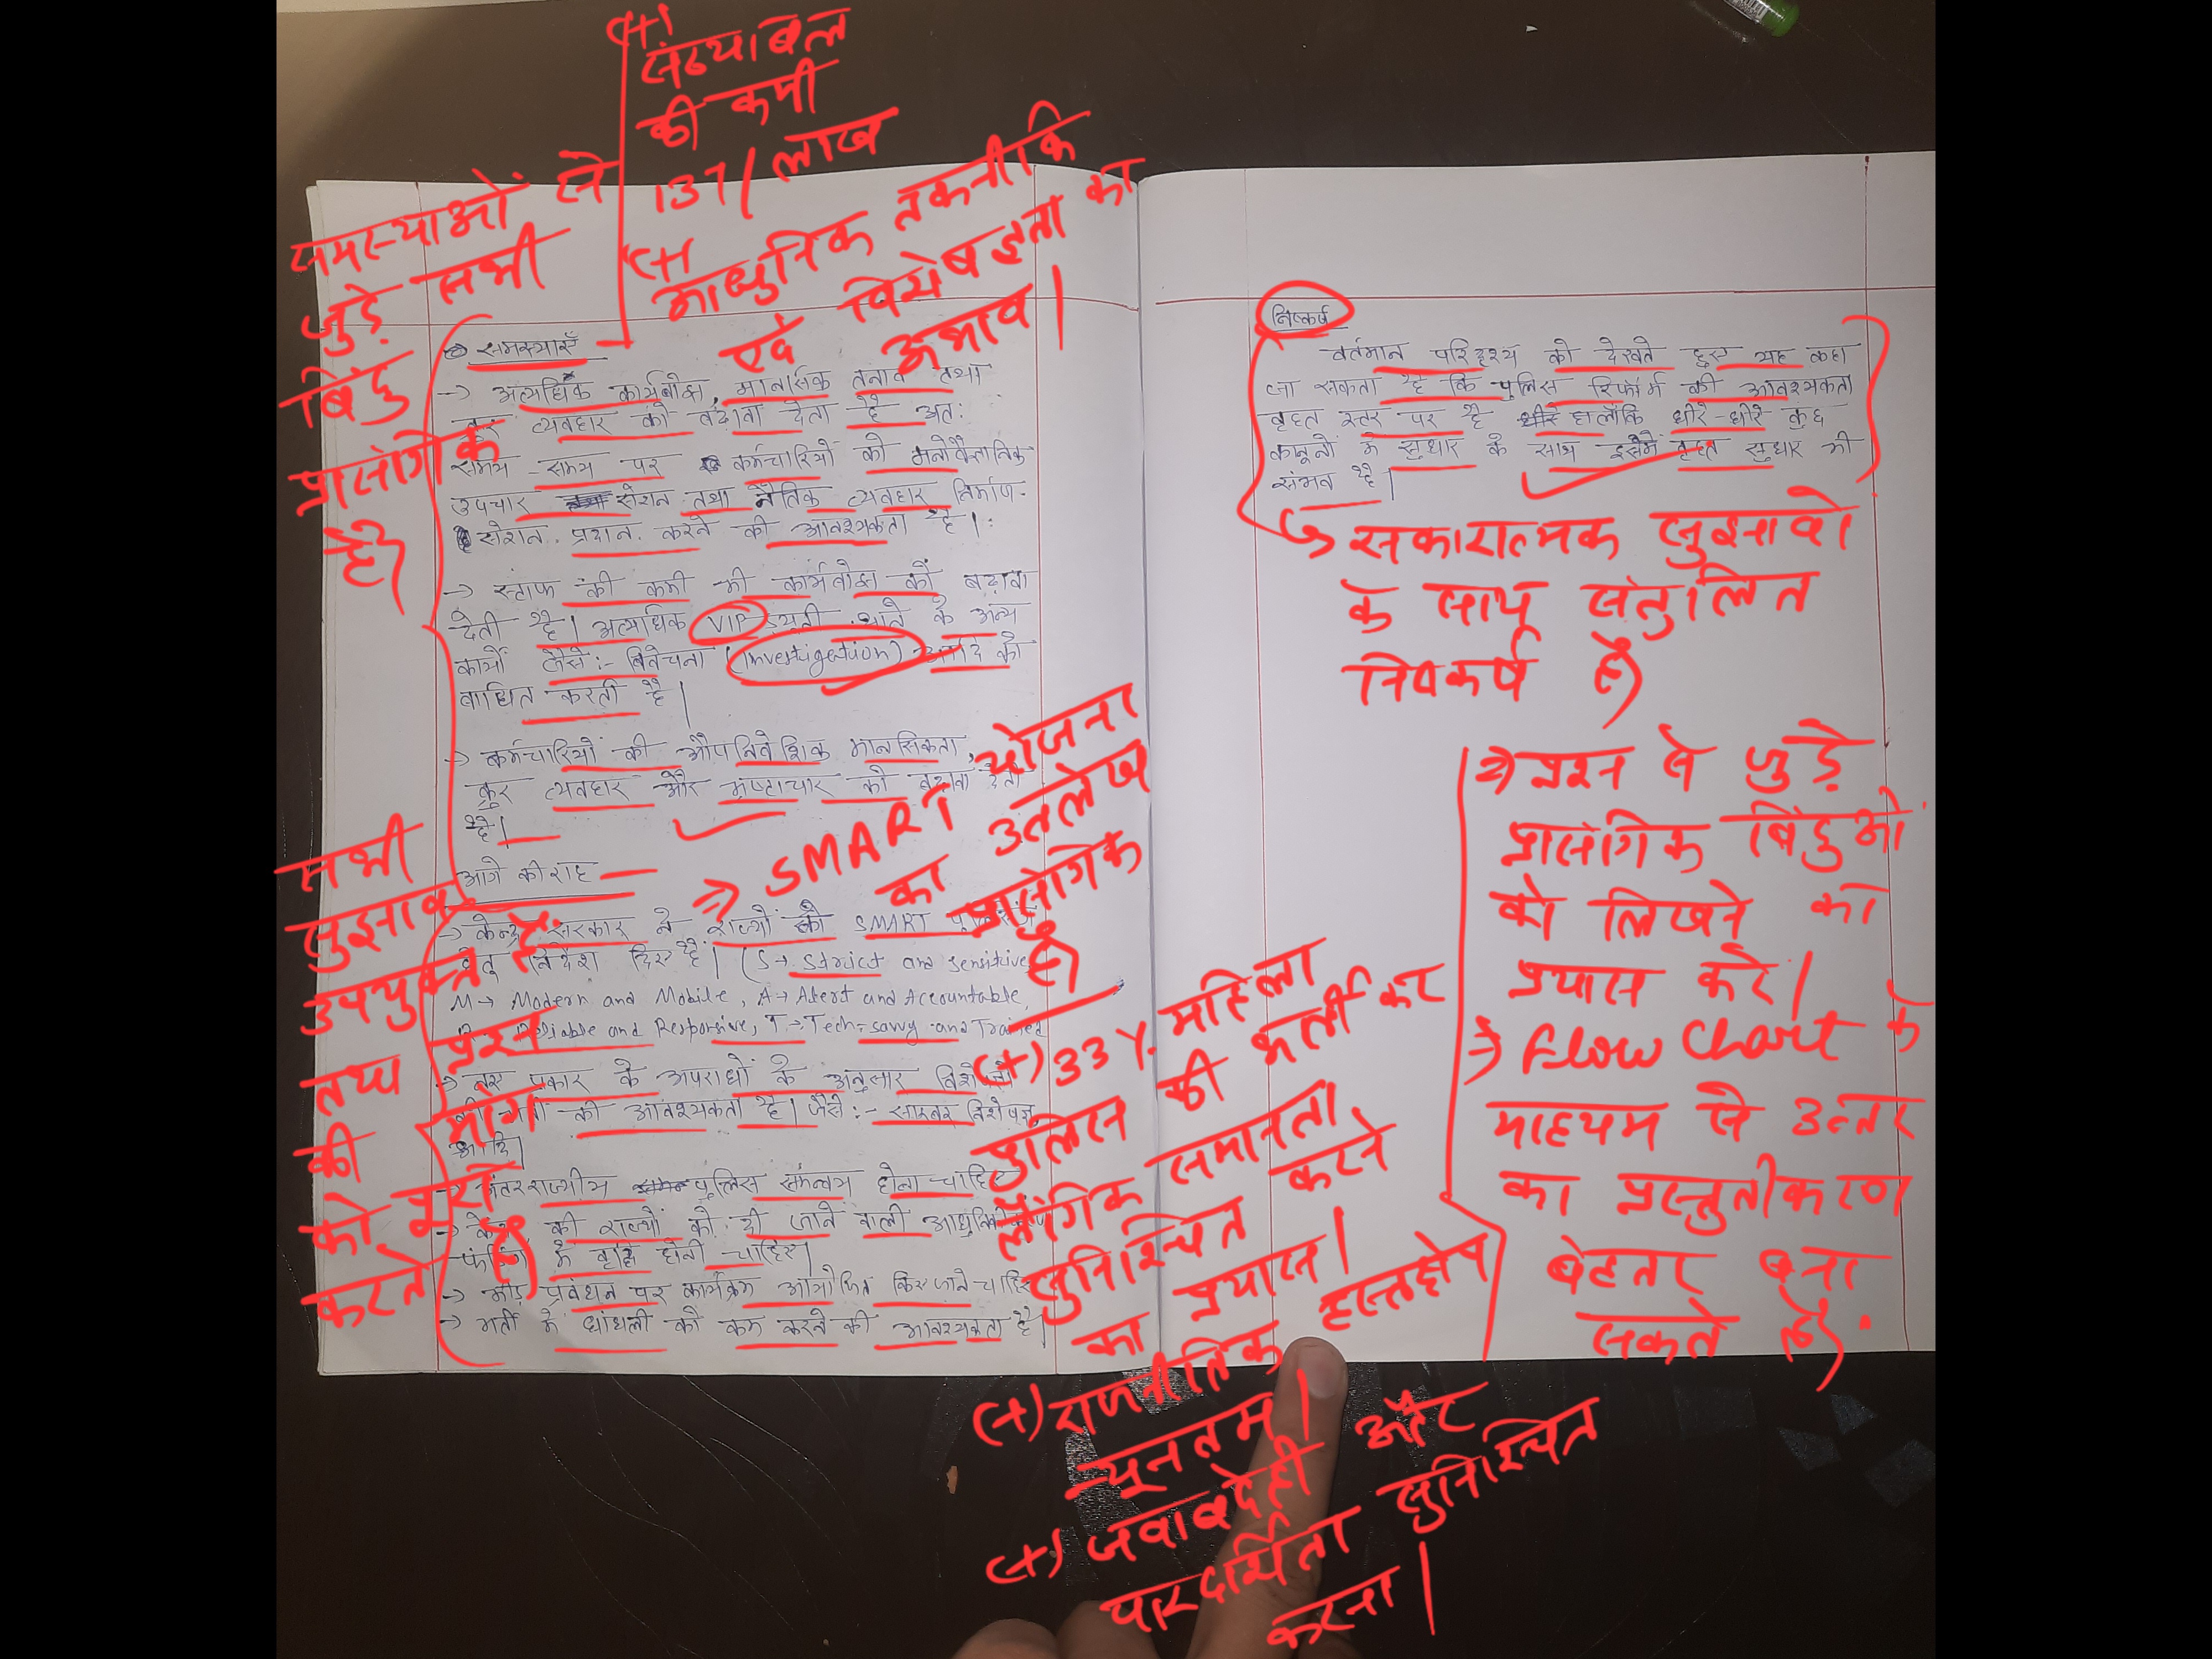 (+)
संख्याबल
की कमी
137/लाख
(+)
आधुनिक तकनीकि
एवं विशेषज्ञता का
अभाव।
समस्याओं से
जुड़े सभी
बिंदु
प्रासंगिक
है।
समस्याएँ
→ अत्यधिक कार्यबोझ, मानसिक तनाव तथा
क्रूर व्यवहार को बढ़ावा देता है अत:
समय-समय पर कर्मचारियों को मनोवैज्ञानिक
उपचार सेशन तथा नैतिक व्यवहार निर्माण
सेशन प्रदान करने की आवश्यकता है।
→ स्टाफ की कमी भी कार्यबोझ को बढ़ावा
देती है। अत्यधिक VIP ड्यूटी थाने के अन्य
कार्यों जैसे:- विवेचना (Investigation) आदि को
बाधित करती है।
→ कर्मचारियों की औपनिवेशिक मानसिकता,
क्रूर व्यवहार और भ्रष्टाचार को बढ़ावा देती
है।
आगे की राह
→ केन्द्र सरकार ने राज्यों को SMART
हेतु निर्देश दिए हैं। (S → Strict and Sensitive,
M → Modern and Mobile, A → Alert and Accountable,
Reliable and Responsive, T → Tech-savvy and Trained
→ नए प्रकार के अपराधों के अनुसार विशेषज्ञों
की आवश्यकता है। जैसे:- साइबर विशेषज्ञ
आदि।
अंतरराज्यीय पुलिस समन्वय होना चाहिए
की राज्यों को दी जाने वाली
फंडिंग में वृद्धि होनी चाहिए।
→ भीड़ प्रबंधन पर कार्यक्रम आयोजित किए जाने चाहिए
→ भर्ती में धांधली को कम करने की आवश्यकता है।
सभी
सुझाव
उपयुक्त हैं
तथा प्रश्न
की मांग
को पूरा
करते हैं।
⇒ SMART योजना
का उल्लेख
प्रासंगिक
है।
(+) 33% महिला
पुलिस की भर्ती कर
लैंगिक समानता
सुनिश्चित करने
का प्रयास।
(+) राजनीतिक हस्तक्षेप
न्यूनतम।
(+) जवाबदेही और
पारदर्शिता सुनिश्चित
करना।
निष्कर्ष
वर्तमान परिदृश्य को देखते हुए यह कहा
जा सकता है कि पुलिस रिफॉर्म की आवश्यकता
वृहत स्तर पर है हालाँकि धीरे-धीरे कुछ
कानूनों में सुधार के साथ इसमें वृहत सुधार भी
संभव है।
→ सकारात्मक सुझावों
के साथ संतुलित
निष्कर्ष है।
⇒ प्रश्न से जुड़े
प्रासंगिक बिंदुओं
को लिखने का
प्रयास करें।
⇒ Flow Chart के
माध्यम से उत्तर
का प्रस्तुतीकरण
बेहतर बना
सकते हैं।